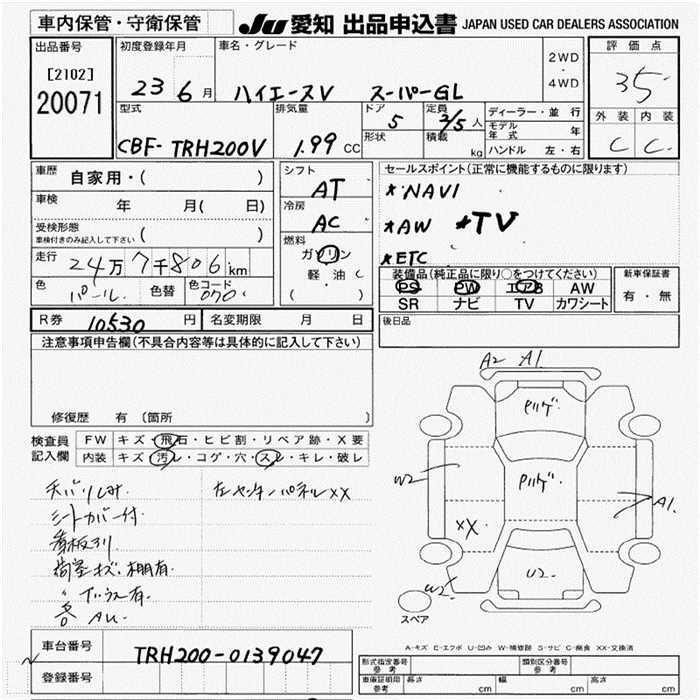 車内保管・守衛保管
JU 愛知 出品申込書 JAPAN USED CAR DEALERS ASSOCIATION
出品番号
[2102]
20071
初度登録年月
23 6 月
車名・グレード
ハイエースV スーパーGL
2WD
・
4WD
評価点
3.5
外装 内装
C C
型式
CBF-TRH200V
排気量
1.99 CC
ドア
5
形状
定員
2/5 人
積載
kg
ディーラー・並行
モデル年式 年
ハンドル 左・右
車歴
自家用・( )
車検
年 月( 日)
受検形態
車検付きのみ記入して下さい ( )
走行
24万7千806km
色
パール
色替
色コード
070
シフト
AT
冷房
AC
燃料
ガソリン
軽油
( )
セールスポイント(正常に機能するものに限ります)
*NAVI
*AW *TV
*ETC
装備品(純正品に限り○をつけてください)
PS PW エアB AW
SR ナビ TV カワシート
新車保証書
有・無
後日品
R券 10530 円
名変期限 月 日
注意事項申告欄(不具合内容等は具体的に記入して下さい)
修復歴 有 (箇所
検査員
記入欄
FW キズ・飛石・ヒビ割・リペア跡・X要
内装 キズ・汚レ・コゲ・穴・スレ・キレ・破レ
天バリしみ
左センターパネルXX
シートカバー付
看板引
荷室キズ、棚有
A2 A1
W2
XX
A1
U2
W2
スペア
A-キズ E-エクボ U-凹み W-補修跡 S-サビ C-腐食 XX-交換済
車台番号
TRH200-0139047
登録番号
型式指定番号
参考
類別区分番号
参考
車庫証明用
参考
長さ cm
幅 cm
高さ cm